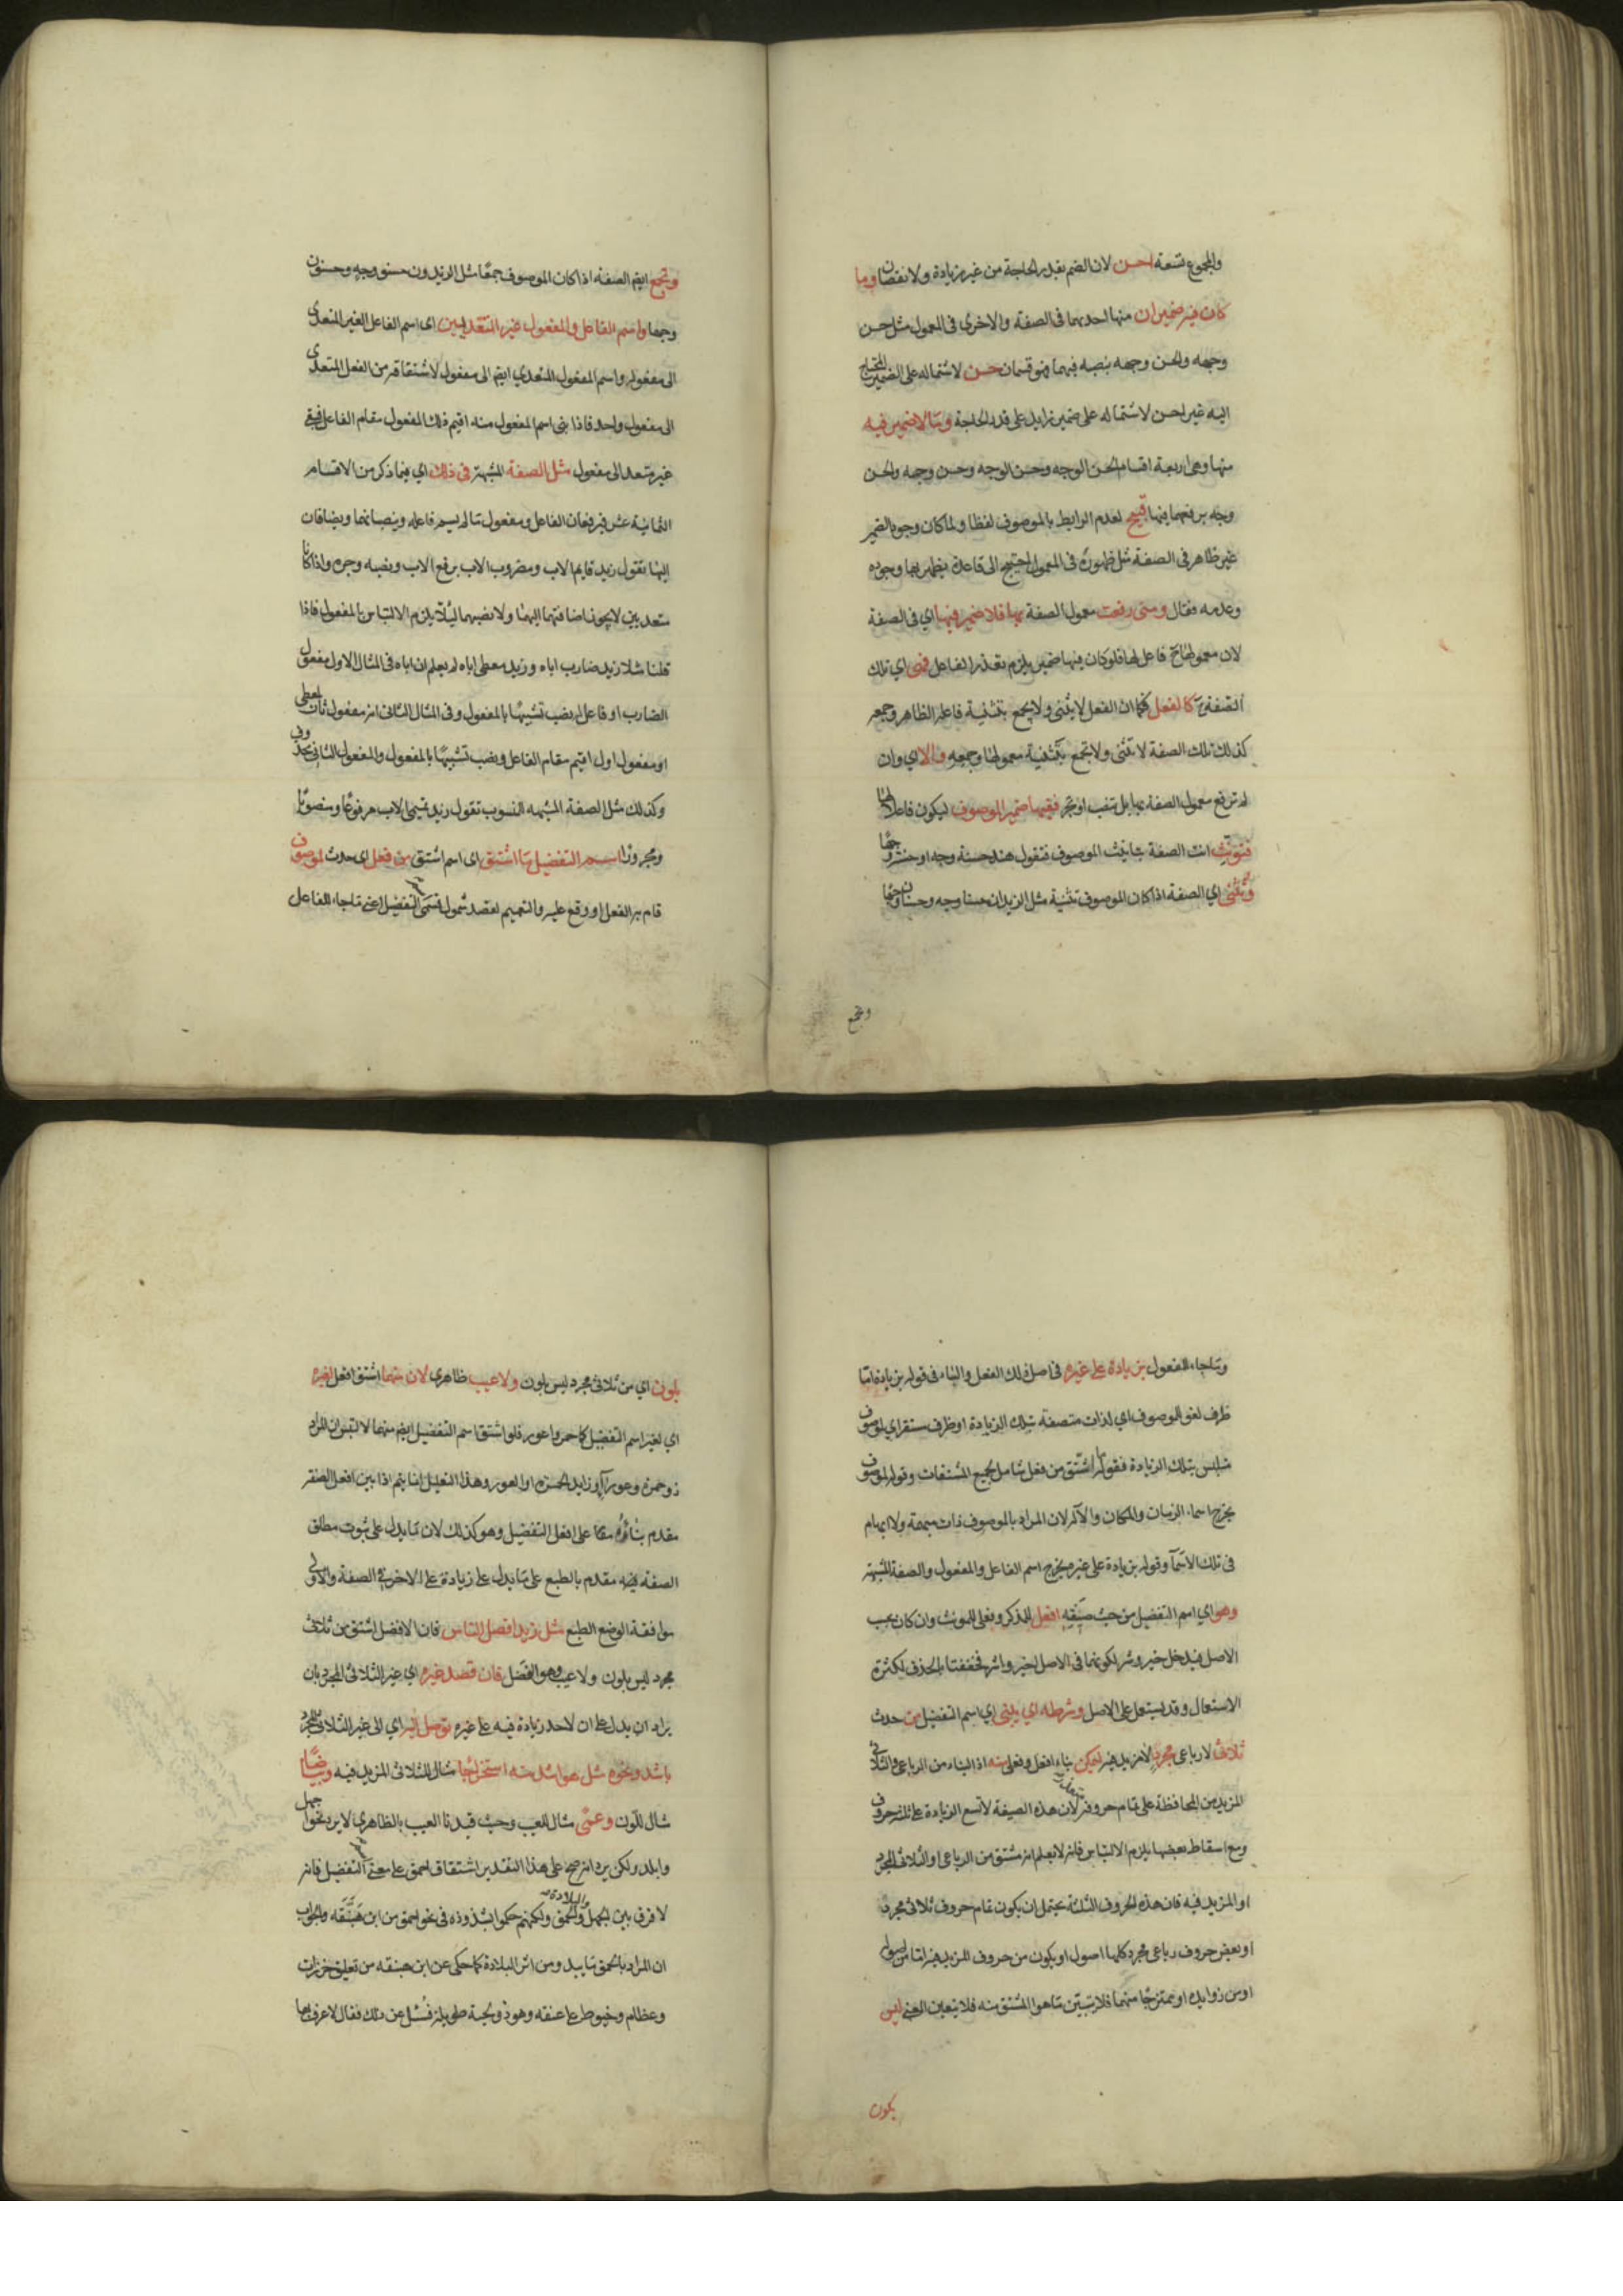 والمجموع تسعة احسن لان الضمير بقدر الحاجة من غير زيادة ولا نقصان وما
كان فيه ضميران منها احدهما فى الصفة والاخرى فى المعمول مثل حسن
وجهه والحسن وجهه بنصبه فيهما فهو قسمان حسن لاشتماله على الضمير المحتاج
اليه غير احسن لاشتماله على ضمير زايد على قدر الحاجة وما لا ضمير فيه
منها وهى اربعة اقسام الحسن الوجه وحسن الوجه وحسن وجه والحسن
وجه برفعها فيها قبيح لعدم الرابط بالموصوف لفظا ولما كان وجود الضمير
غير ظاهر فى الصفة مثل ظهوره فى المعمول احتيج الى قاعدة يظهر بها وجوده
وعدمه فقال ومتى رفعت معمول الصفة بها فلا ضمير فيها اي فى الصفة
لان معمولها ح فاعل لها فلو كان فيها ضمير يلزم تعدد الفاعل فهى اي تلك
الصفة ح كالفعل فكما ان الفعل لا يثنى ولا يجمع بتثنية فاعله الظاهر وجمعه
كذلك تلك الصفة لا تثنى ولا تجمع بتثنية معمولها وجمعه والا اي وان
لم ترفع معمول الصفة بها بل تنصب او تجر ففيها ضمير الموصوف ليكون فاعلا لها
فتونث انت الصفة بتانيث الموصوف فتقول هند حسنة وجه او حسنة وجها
وتثنى اي الصفة اذا كان الموصوف تثنية مثل الزيدان حسنا وجه وحسنان وجها
وتجمع
وتجمع ايضم الصفة اذا كان الموصوف جمعا مثل الزيدون حسنو وجه وحسنون
وجها واسم الفاعل والمفعول غير المتعديين اى اسم الفاعل الغير المتعدى
الى مفعول واسم المفعول المتعدي ايضم الى مفعول لاشتقاقه من الفعل المتعدى
الى مفعول واحد فاذا بنى اسم المفعول منه اقيم ذلك المفعول مقام الفاعل فبقى
غير متعد الى مفعول مثل الصفة المشبهة فى ذلك اي فيما ذكر من الاقسام
الثمانية عشر فيرفعان الفاعل ومفعول ما لم يسم فاعله وينصبانهما ويضافان
اليهما تقول زيد قايم الاب ومضروب الاب برفع الاب ونصبه وجره واذا كانا
متعديين لا يجوز اضافتهما اليهما ولا نصبهما ليلا يلزم الالتباس بالمفعول فاذا
قلنا مثلا زيد ضارب اباه وزيد معطى اباه لم يعلم ان اباه فى المثال الاول مفعول
الضارب او فاعل له نصب تشبيها بالمفعول وفى المثال الثانى انه مفعول ثان لمعطى
او مفعول اول اقيم مقام الفاعل ونصب تشبيها بالمفعول والمفعول الثانى محذوف
وكذلك مثل الصفة المشبهه المنسوب تقول زيد تميمى الاب مرفوعا ومنصوبا
ومجرورا اسم التفضيل ما اشتق اى اسم اشتق من فعل اى حدث لموصوف
قام به الفعل او وقع عليه والتعميم لقصد شمول قسمى التفضيل اعنى ما جاء للفاعل
وما جاء للمفعول بزيادة على غيره فى اصل ذلك الفعل والباء فى قوله بزيادة اما
ظرف لغو الموصوف اى لذات متصفة بتلك الزيادة او ظرف مستقر اي لموصوف
متلبس بتلك الزيادة فقوله ما اشتق من فعل شامل لجميع المشتقات وقوله لموصوف
يخرج اسماء الزمان والمكان والآلة لان المراد بالموصوف ذات مبهمة ولا ابهام
فى تلك الاسما وقوله بزيادة على غيره يخرج اسم الفاعل والمفعول والصفة المشبهة
وهو اي اسم التفضيل من حيث صيغته افعل للمذكر وفعلى للمونث وان كان بحسب
الاصل فيدخل خير وشر لكونهما فى الاصل اخير واشر فخففتا بالحذف لكثرة
الاستعمال وقد يستعمل على الاصل وشرطه اى يبنى اي اسم التفضيل من حدث
ثلاثى لا رباعى مجرد لا مزيد فيه ليمكن بناء افعل وفعلى منه اذ البناء من الرباعى والثلاثى
المزيد مع المحافظة على تمام حروفه متعذر لان هذه الصيغة لا تسع الزيادة على ثلثة حروف
ومع اسقاط بعضها يلزم الالتباس فانه لا يعلم انه مشتق من الرباعى او الثلاثى المجرد
او المزيد فيه فان هذه الحروف الثلثة يحتمل ان يكون تمام حروف ثلاثى مجرد
او بعض حروف رباعى مجرد كلها اصول او يكون من حروف المزيد فيه اما من اصوله
او من زوايده او ممتزجا منهما فلا يتبين ما هو المشتق منه فلا يتعين المعنى ليس
بلون
بلون اي من ثلاثى مجرد ليس بلون ولا عيب ظاهرى لان منهما اشتق افعل لغيره
اي لغير اسم التفضيل كاحمر واعور فلو اشتق اسم التفضيل ايضم منهما لالتبس ان المراد
ذو حمرة وعور او زايد الحمرة او العور وهذا التعليل انما يتم اذا بين افعل الصفة
مقدم بناؤه على افعل التفضيل وهو كذلك لان ما يدل على ثبوت مطلق
الصفة مقدم بالطبع على ما يدل على زيادة على الاخر فى الصفة والاولى
موافقة الوضع الطبع مثل زيد افضل الناس فان الافضل اشتق من ثلاثى
مجرد ليس بلون ولا عيب وهو الفضل فان قصد غيره اي غير الثلاثى المجرد بان
يراد ان يدل على ان لاحد زيادة فيه على غيره توصل اليه اي الى غير الثلاثى المجرد
باشد ونحوه مثل هو اشد منه استخراجا مثال للثلاثى المزيد فيه وبياضا
مثال للون وعمى مثال للعيب وحيث قيدنا العيب بالظاهرى لا يرد نحو اجهل
وابلد ولكن يرد انه صح على هذا التقدير اشتقاق احمق على معنى التفضيل فانه
لا فرق بين الجهل والبلادة والحمق ولكنهم حكموا بشذوذه فى نحو احمق من ابن هبنقه والجواب
ان المراد بالحمق ما يبد ومن اثر البلادة كما حكى عن ابن هبنقه من تعليق خرزات
وعظام وخيوط على عنقه وهو ذو لحية طويلة فسئل عن ذلك فقال لاعرف بها